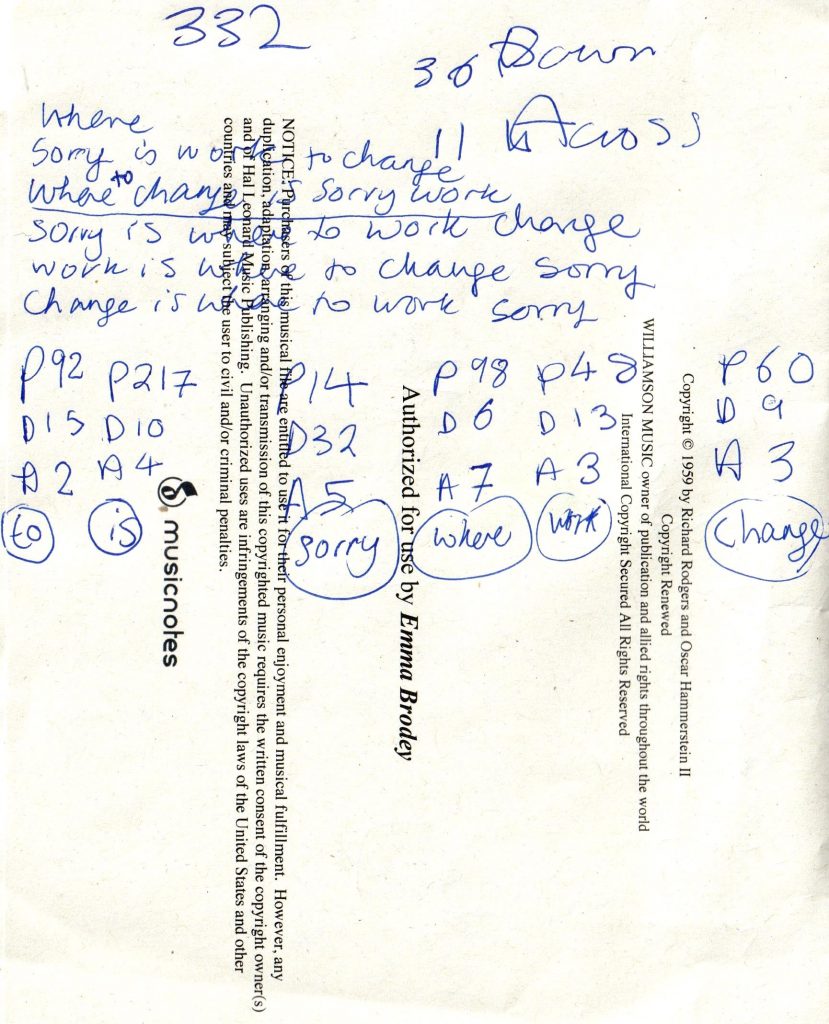 332
36 Down
11 Across
where
Sorry is work to change
where to change is sorry work
sorry is where to work change
work is where to change sorry
change is where to work sorry
P92 P217 P14 P98 P48 P60
D15 D10 D32 D6 D13 D9
A2 A4 A5 A7 A3 A3
to is sorry where work change
Copyright © 1959 by Richard Rodgers and Oscar Hammerstein II
Copyright Renewed
WILLIAMSON MUSIC owner of publication and allied rights throughout the world
International Copyright Secured All Rights Reserved
Authorized for use by Emma Brodey
NOTICE: Purchasers of this musical file are entitled to use it for their personal enjoyment and musical fulfillment. However, any
duplication, adaptation, arranging and/or transmission of this copyrighted music requires the written consent of the copyright owner(s)
and of Hal Leonard Music Publishing. Unauthorized uses are infringements of the copyright laws of the United States and other
countries and may subject the user to civil and/or criminal penalties.
musicnotes